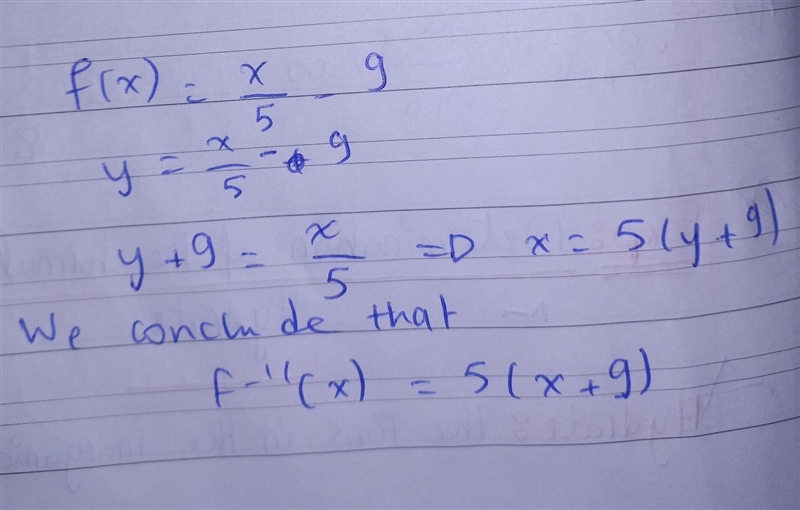 f(x) = x/5 - 9
y = x/5 - 9
y + 9 = x/5 => x = 5(y + 9)
We conclude that
f-1(x) = 5(x + 9)